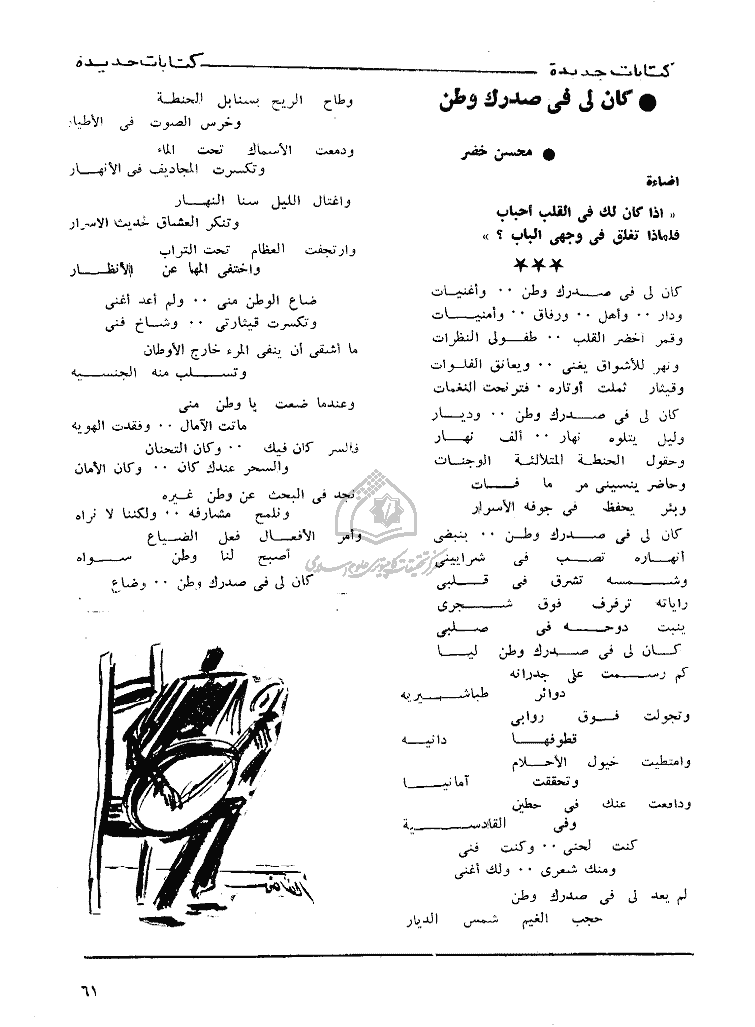 كتابات جديدة
كتابات جديدة
● كان لى فى صدرك وطن
● محسن خضر
اضاءة
« اذا كان لك فى القلب أحباب
فلماذا تغلق فى وجهى الباب ؟ »
***
كان لى فى صدرك وطن ٠٠ وأغنيات
ودار ٠٠ وأهل ٠٠ ورفاق ٠٠ وأمنيات
وقمر اخضر القلب ٠٠ طفولى النظرات
ونهر للأشواق يغنى ٠٠ ويعانق الفلوات
وقيثار ثملت أوتاره ٠ فترنحت النغمات
كان لى فى صدرك وطن ٠٠ وديار
وليل يتلوه نهار ٠٠ ألف نهار
وحقول الحنطة المتلالئة الوجنات
وحاضر ينسينى مر ما فات
وبئر يحفظ فى جوفه الأسرار
كان لى فى صدرك وطن ٠٠ ينبضى
أنهاره تصب فى شرايينى
وشمسه تشرق فى قلبى
راياته ترفرف فوق شجرى
ينبت دوحه فى صلبى
كان لى فى صدرك وطن ليا
كم رسمت على جدرانه
دوائر طباشيريه
وتجولت فوق روابى
قطوفها دانيه
وامتطيت خيول الأحلام
وتحققت أمانيا
ودافعت عنك فى حطين
وفى القادسية
كنت لحنى ٠٠ وكنت فنى
ومنك شعرى ٠٠ ولك أغنى
لم يعد لى فى صدرك وطن
حجب الغيم شمس الديار
وطاح الريح بسنابل الحنطة
وخرس الصوت فى الأطيار
ودمعت الأسماك تحت الماء
وتكسرت المجاديف فى الأنهار
واغتال الليل سنا النهار
وتنكر العشاق لحديث الاسرار
وارتجفت العظام تحت التراب
واختفى المها عن الأنظار
ضاع الوطن منى ٠٠ ولم أعد أغنى
وتكسرت قيثارتى ٠٠ وشاخ فنى
ما أشقى أن ينفى المرء خارج الأوطان
وتسلب منه الجنسيه
وعندما ضعت يا وطن منى
ماتت الآمال ٠٠ وفقدت الهويه
فالسر كان فيك ٠٠ وكان التحنان
والسحر عندك كان ٠٠ وكان الأمان
نجد فى البحث عن وطن غيره
ونلمح مشارفه ٠٠ ولكننا لا نراه
وأمر الأفعال فعل الضياع
أصبح لنا وطن سواه
كان لى فى صدرك وطن ٠٠ وضاع
٦١